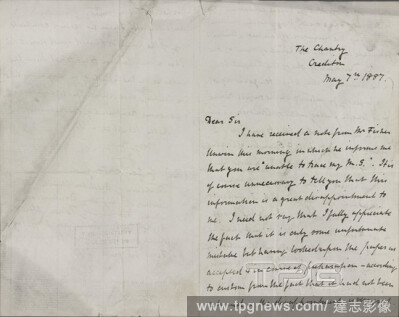 The Chantry
Crediton
May 7th 1887.
Dear Sir
I have received a note from Mr Fisher
Unwin this morning in which he informs me
that you are "unable to trace my M.S.". It is
of course unnecessary to tell you that this
information is a great disappointment to
me. I need not say that I fully appreciate
the fact that it is only some unfortunate
mistake but having looked upon the paper as
accepted & in course of preparation - according
to custom from the fact that it had not been
www.tpgnews.com / 達志影像